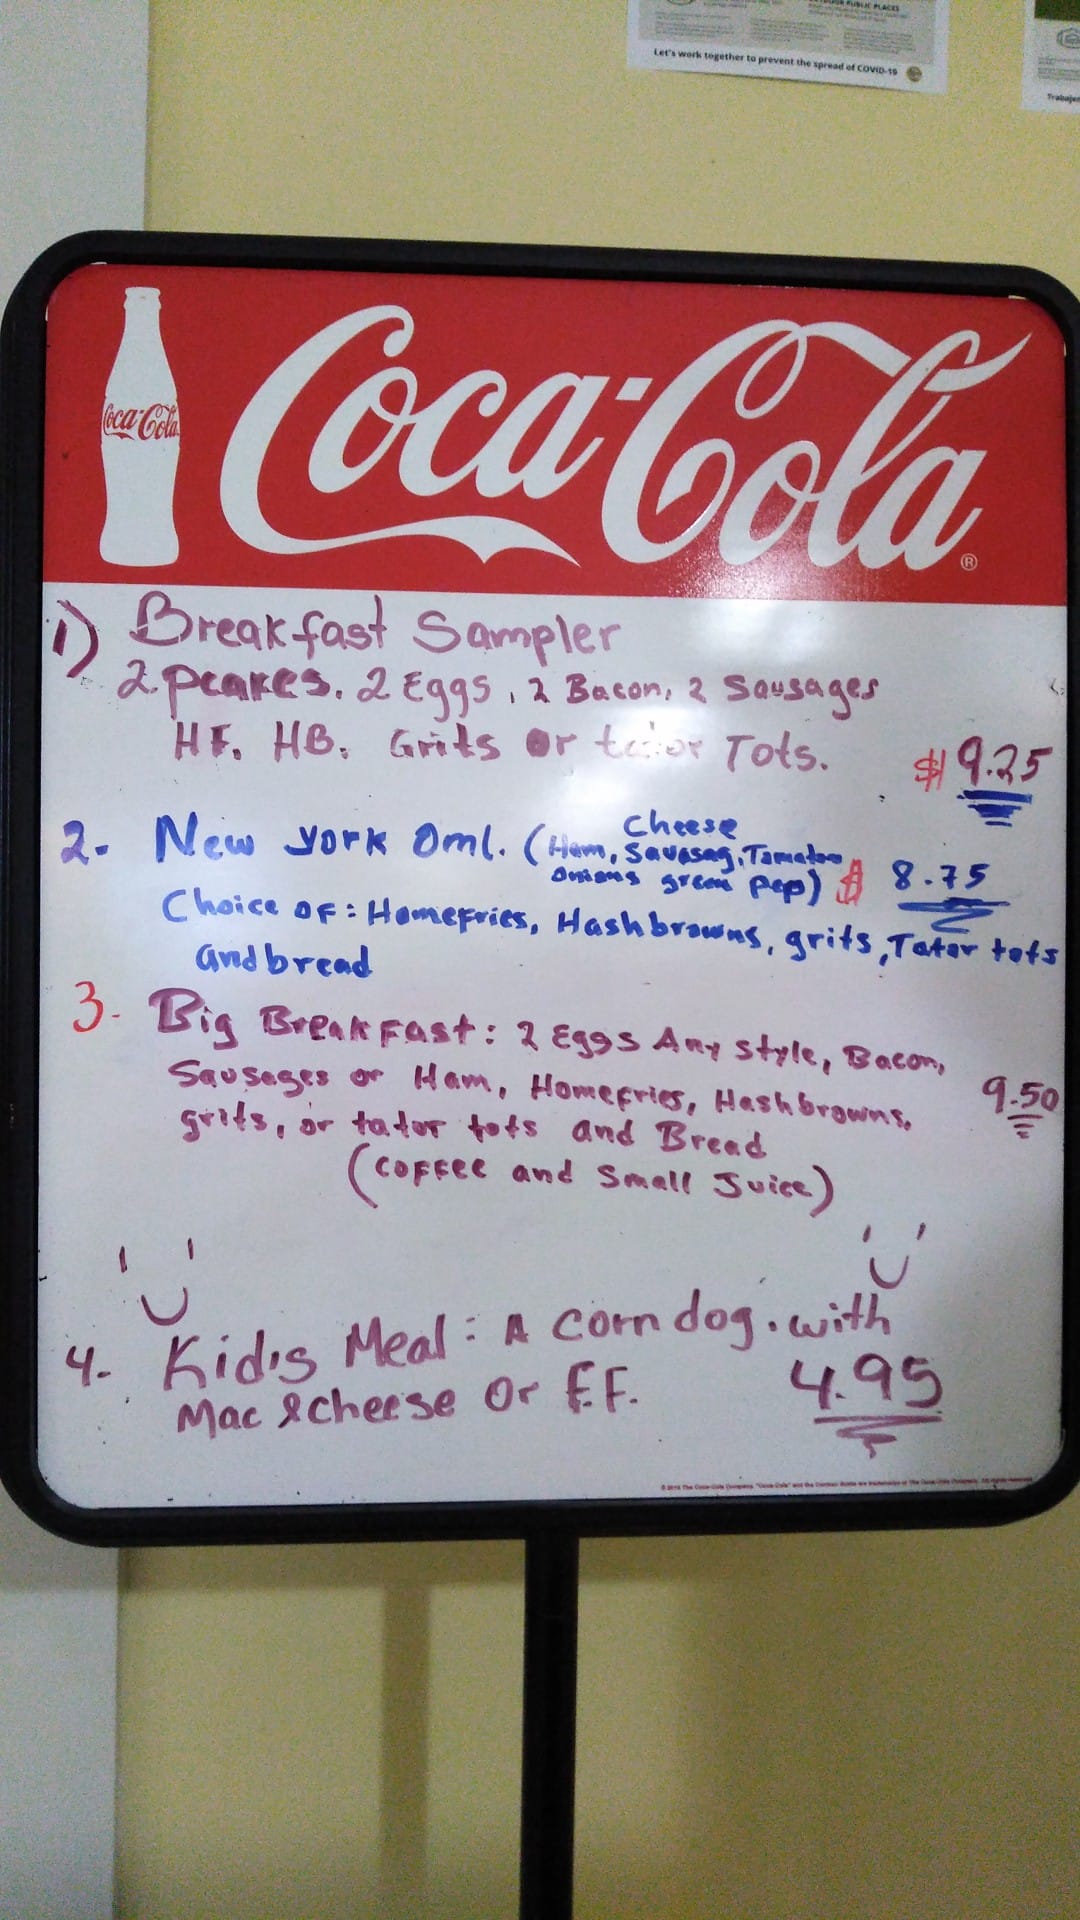 OUTDOOR PUBLIC PLACES
Let's work together to prevent the spread of COVID-19
Coca-Cola
Coca-Cola®
1) Breakfast Sampler
2 pcakes. 2 Eggs, 2 Bacon, 2 Sausages
HF. HB. Grits or tator Tots.
$ 9.25
2- New york Oml. (Ham, Sausasg, Tomatoe
Cheese
onions green pep) $ 8.75
Choice of: Homefries, Hashbrowns, grits, Tator tots
and bread
3- Big Breakfast: 2 Eggs Any style, Bacon,
Sausages or Ham, Homefries, Hashbrowns,
grits, or tator tots and Bread
9.50
(coffee and Small Juice)
4- Kid's Meal: A corn dog. with
Mac & cheese or F.F.
4.95